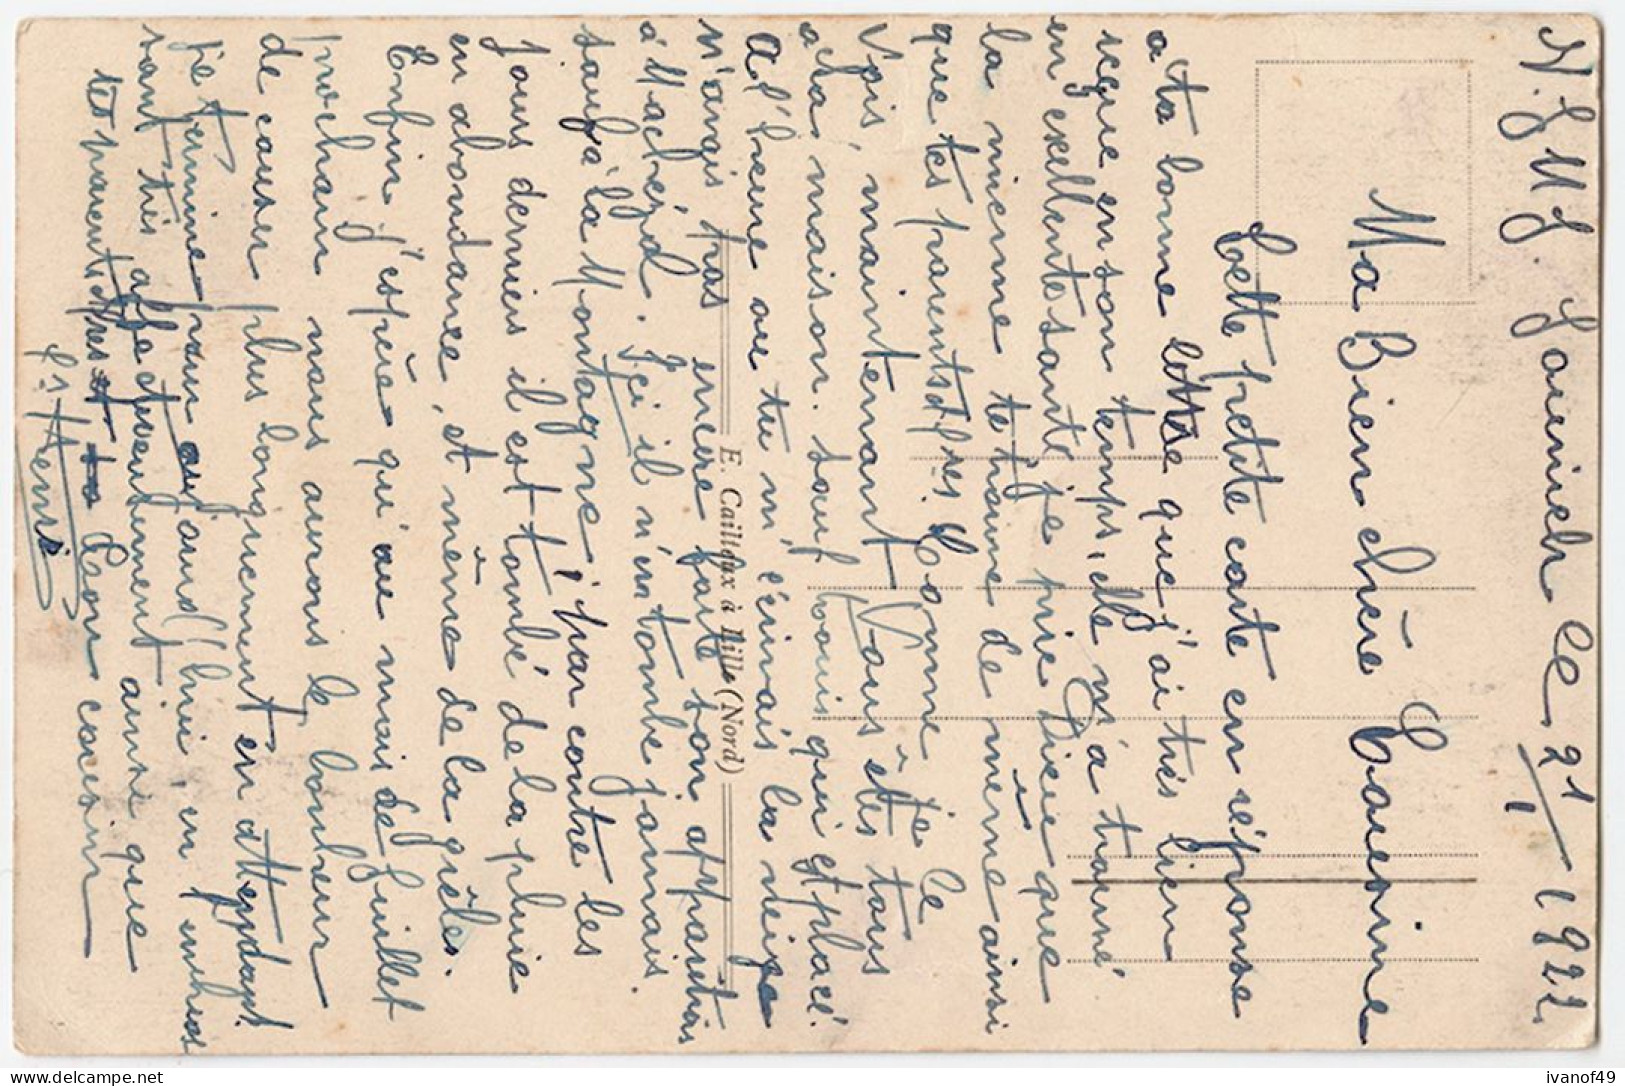 N. J. M. J. Lourinch Ce 21/1/1922.
Ma Bien chère Cousine
Cette petite carte en réponse
a ta bonne lettre que j'ai très bien
reçue en son temps, elle m'a trouvé
en exellente santé je prie Dieu que
la mienne te trouve de même ainsi
que tes parents et Comme je le
Vois, maintenant Vous êtes tous
a la maison. sauf Louis qui est placé.
A l'heure ou tu m'écrivais la neige
n'avais pas encore faite son apparition
à Macheyrd. Ici il n'en tombe jamais.
sauf à la Montagne, par contre les
jours derniers il est tombé de la pluie
en abondance, et même de la grèle.
Enfin j'espère qu'au mois de Juillet
prochain nous aurons le bonheur
de causer plus longuement en attendant
je termine pour aujourd'hui, en
très affectueusement ainsi que
tes parents Ton cousin
Henri
E. Cailteux à Lille (Nord)
ivanof49